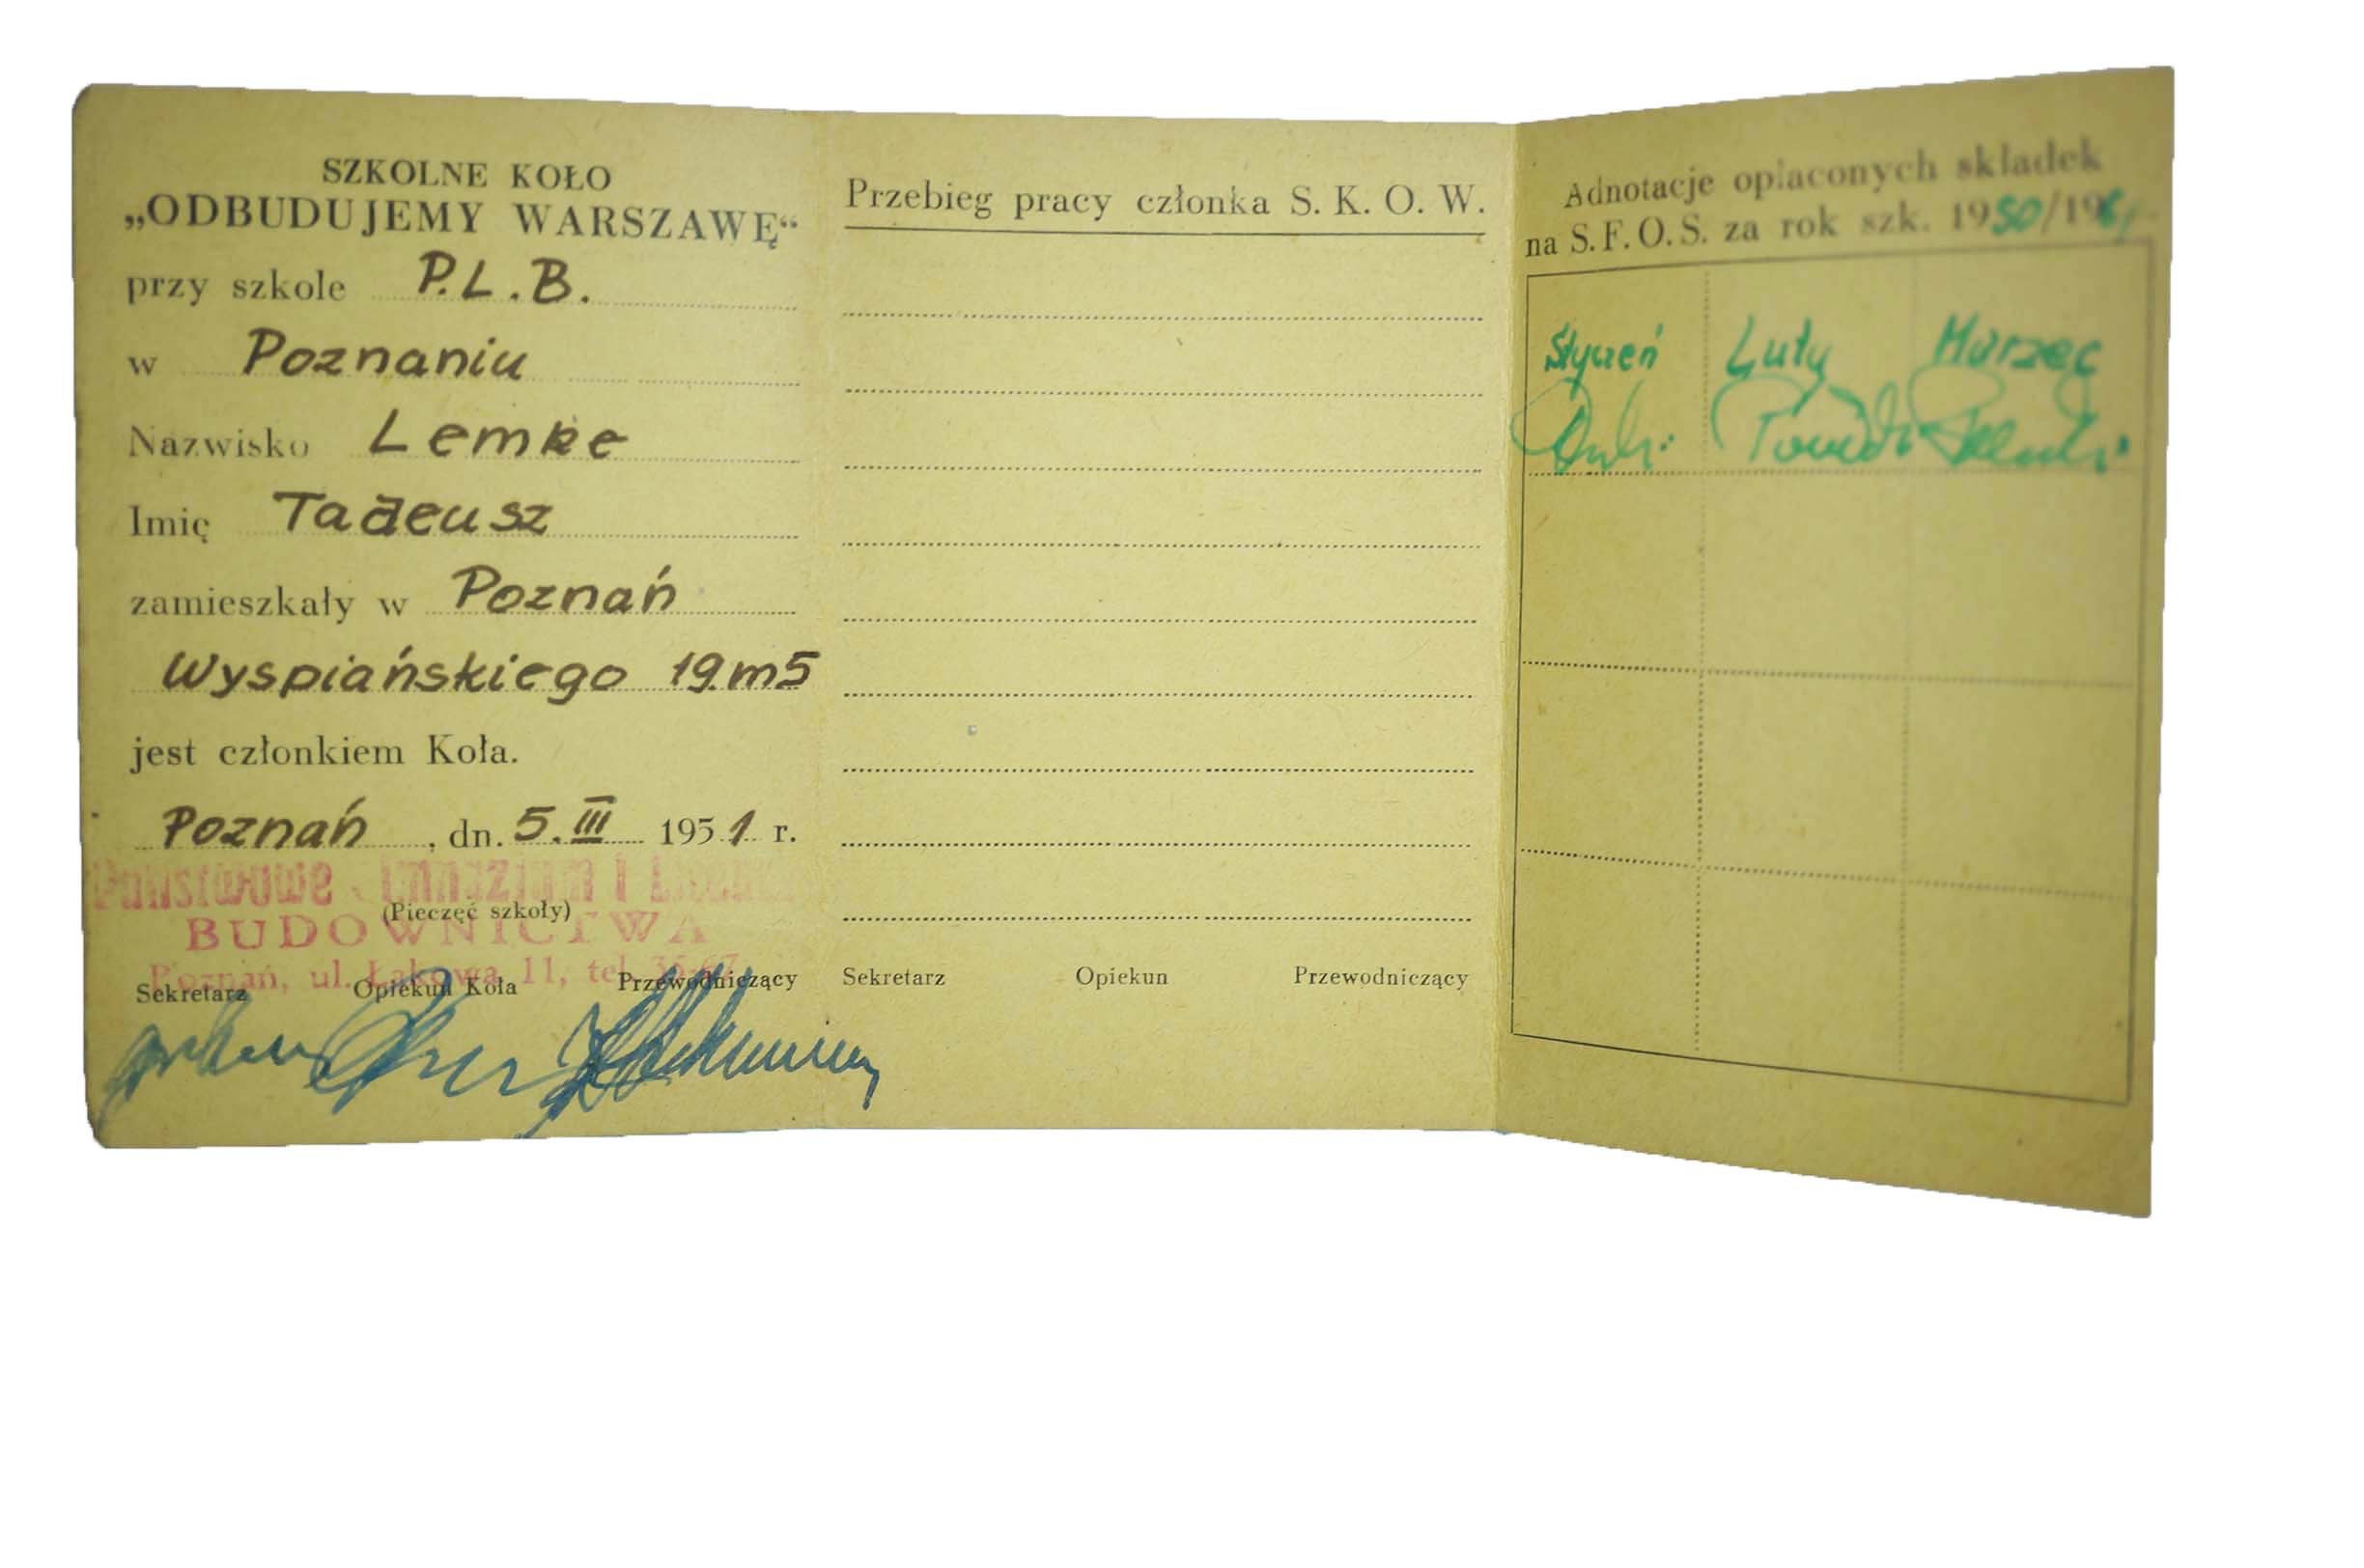 SZKOLNE KOŁO
„ODBUDUJEMY WARSZAWĘ“
przy szkole P.L.B.
w Poznaniu
Nazwisko Lemke
Imię Tadeusz
zamieszkały w Poznań
Wyspiańskiego 19.m5
jest członkiem Koła.
Poznań, dn. 5.III 1951 r.
Państwowe Gimnazjum i Liceum
(Pieczęć szkoły)
BUDOWNICTWA
Poznań, ul. Łąkowa 11, tel.
Sekretarz Opiekun Koła Przewodniczący
Przebieg pracy członka S. K. O. W.
Sekretarz Opiekun Przewodniczący
Adnotacje opłaconych składek
na S.F.O.S. za rok szk. 1950/19
Styczeń Luty Marzec